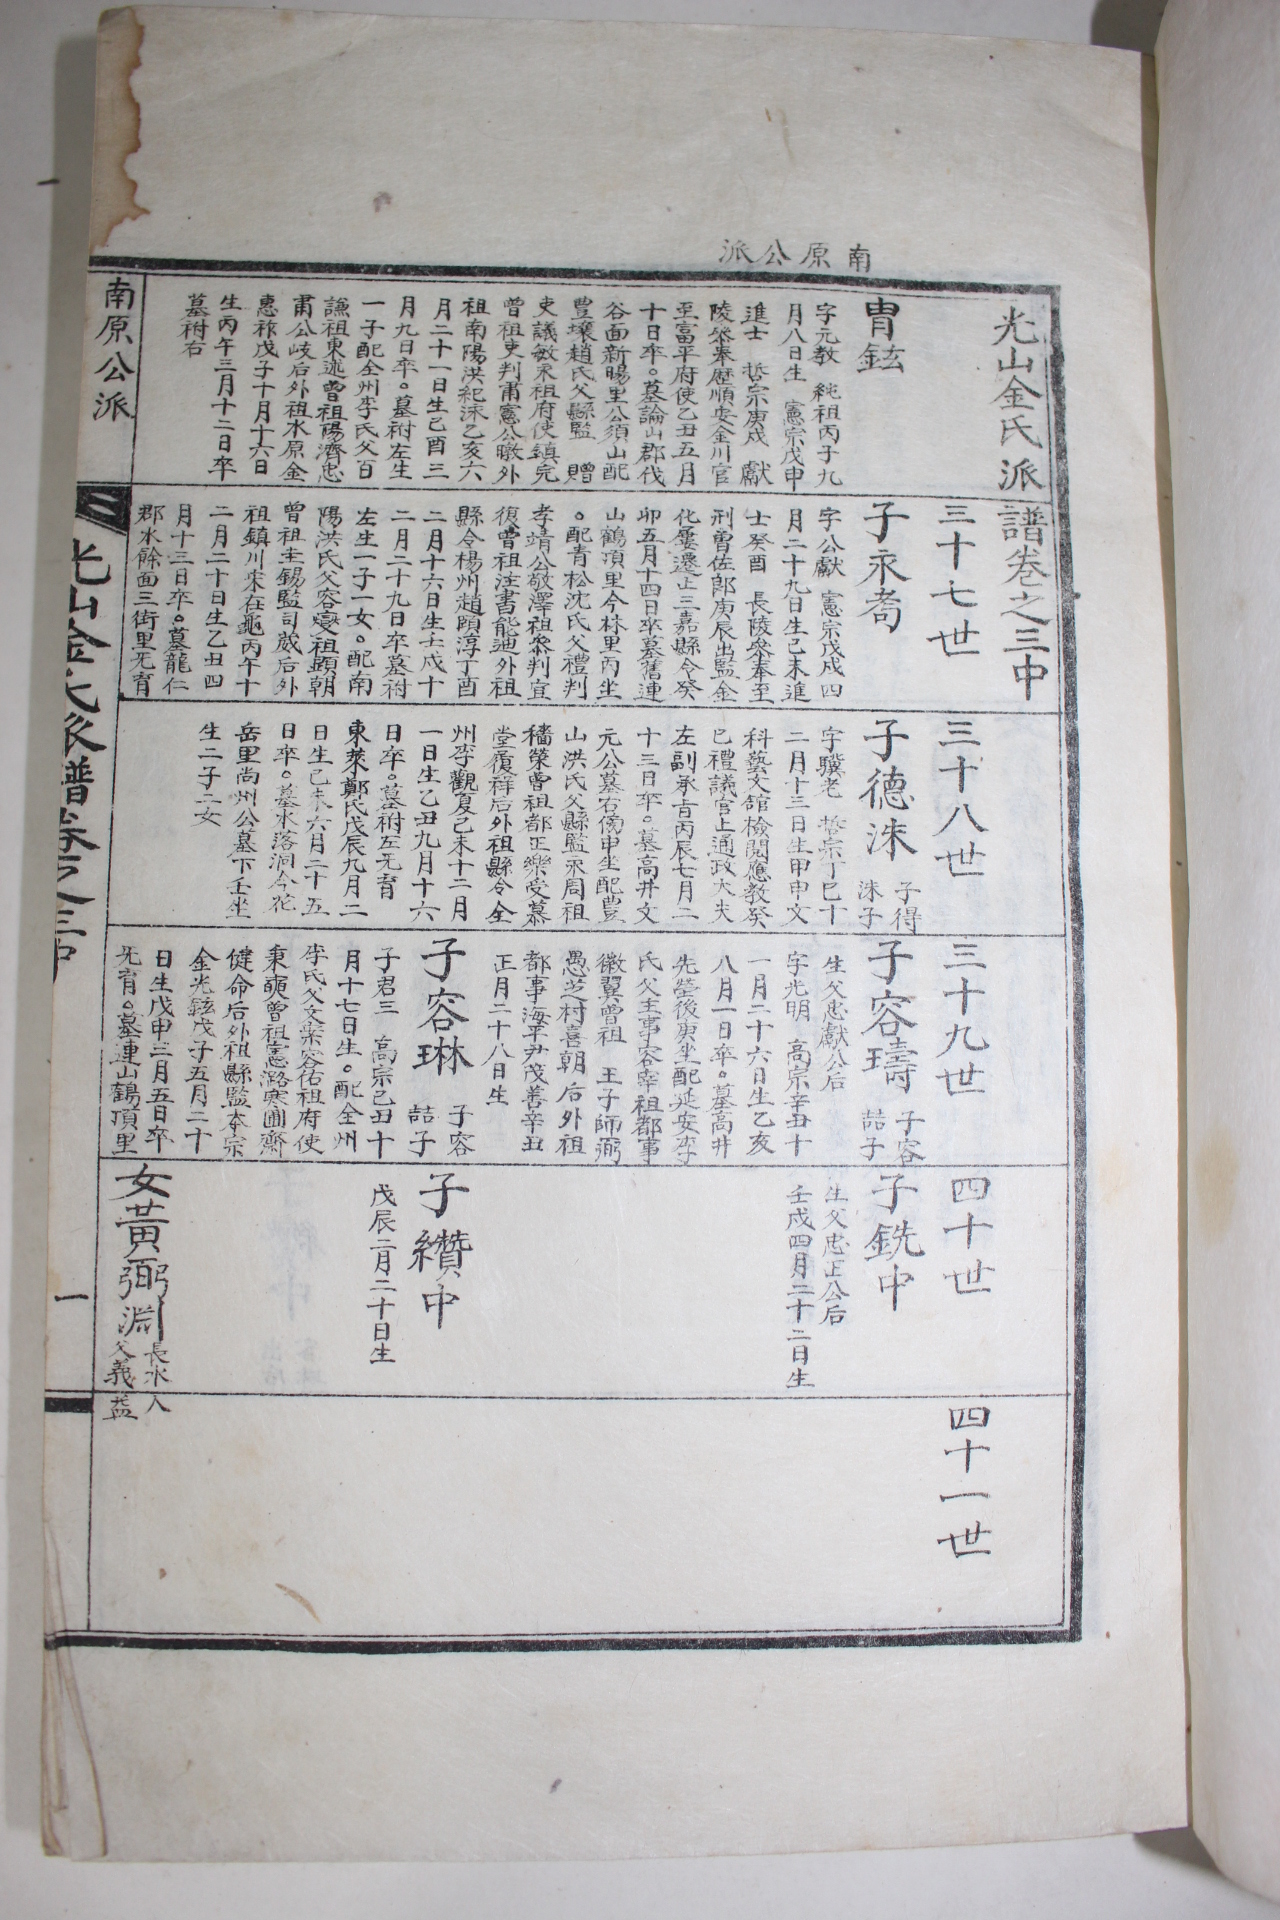 南原公派
光山金氏派譜卷之三中
冑鉉
字元教 純祖丙子九
月八日生 憲宗戊申
進士 哲宗庚戌 獻
陵參奉歷順安金川官
至富平府使乙丑五月
十日卒○墓論山郡伐
谷面新暘里公須山配
豊壤趙氏父縣監 贈
吏議敏永祖府使鎮完
曾祖吏判肅憲公暾外
祖南陽洪紀泳乙亥六
月二十一日生己酉三
月九日卒○墓祔左生
一子配全州李氏父百
謙祖東述曾祖陽濟忠
肅公岐后外祖水原金
惠祚戊子十月十六日
生丙午三月十二日卒
墓祔右
南原公派
三十七世
子永耈
字公獻 憲宗戊戌四
月二十九日生己未進
士癸酉 長陵參奉至
刑曹佐郎庚辰出監金
化屢遷止三嘉縣令癸
卯五月十四日卒墓舊連
山鶴頂里今林里丙坐
○配青松沈氏父禮判
孝靖公敬澤祖參判宜
復曾祖注書能迪外祖
縣令楊州趙頤淳丁酉
二月十六日生壬戌十
二月二十九日卒墓祔
左生一子一女○配南
陽洪氏父容燮祖顯朝
曾祖圭錫監司葳后外
祖鎮川宋在龜丙午十
二月二十日生乙丑四
月十三日卒○墓龍仁
郡水餘面三街里无育
三十八世
子德洙 子得
洙子
字驥老 哲宗丁巳十
二月十三日生甲申文
科藝文館檢閱應教癸
巳禮議官上通政大夫
左副承旨丙辰七月二
十三日卒○墓高井文
元公墓右傍申坐配豊
山洪氏父縣監永周祖
穡榮曾祖都正樂受慕
堂履祥后外祖縣令全
州李觀夏己未十二月
一日生乙丑九月十六
日卒○墓祔左无育
東萊鄭氏戊辰九月二
日生己未六月二十五
日卒○墓水落洞今花
岳里尚州公墓下壬坐
生二子二女
三十九世
子容璹 子容
喆子
生父忠獻公后
字光明 高宗辛丑十
一月二十六日生乙亥
八月一日卒○墓高井
先塋後庚坐配延安李
氏父主事容宰祖都事
徽翼曾祖 王子師弼
愚芝村喜朝后外祖
都事海平尹茂善辛丑
正月二十八日生
子容琳 子容
喆子
字君三 高宗己丑十
月十七日生○配全州
李氏父文案容佑祖府使
秉曾祖憲潞寒圃齋
健命后外祖縣監本宗
金光鉉戊子五月二十
日生戊申三月五日卒
无育○墓連山鶴頂里
四十世
子銑中
生父忠正公后
壬戌四月二十二日生
子纘中
戊辰二月二十日生
女黃弼淵 長水人
父義益
四十一世
光山金氏派譜卷之三中
一